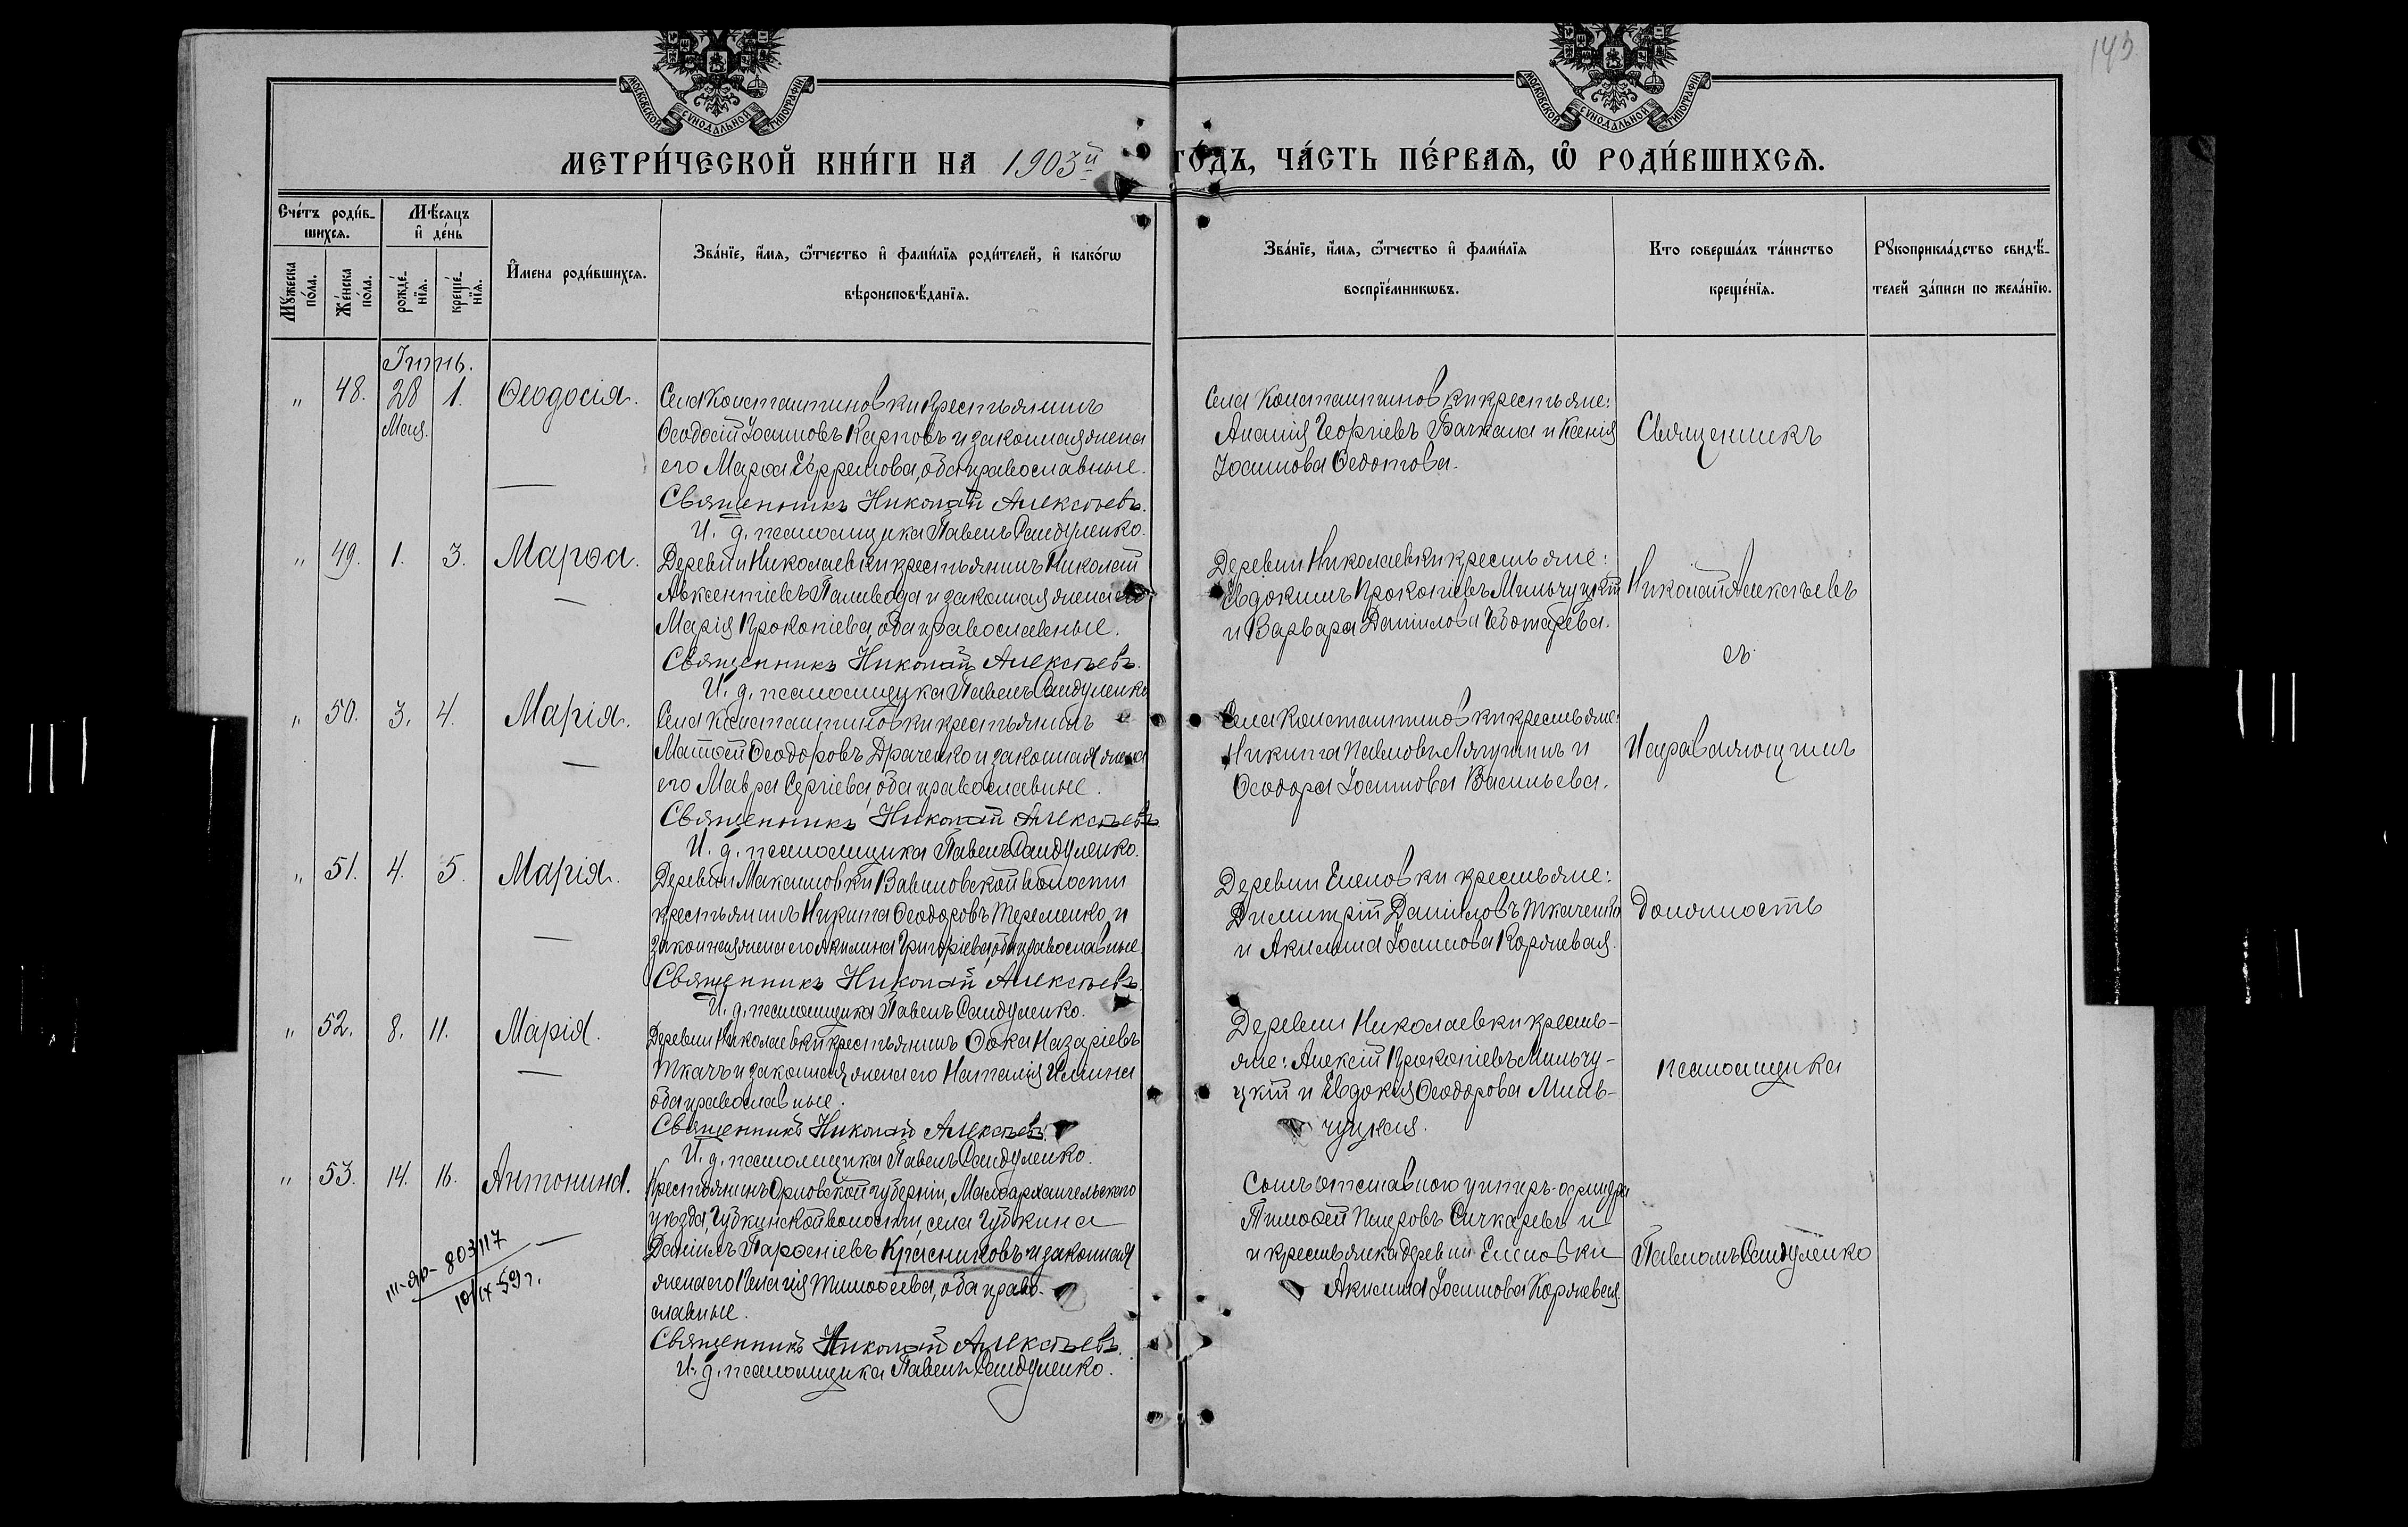 143
МОСКОВСКОЙ СѴНОДАЛЬНОЙ ТИПОГРАФІИ
МОСКОВСКОЙ СѴНОДАЛЬНОЙ ТИПОГРАФІИ
МЕТРИ́ЧЕСКОЙ КНИ́ГИ НА 1903й ГО́ДЪ, ЧА́СТЬ ПЕ́РВАЯ, Ѡ҆ РОДИ́ВШИХСЯ.
Сче́тъ роди́в-
шихся.
Мѣ́сяцъ
и҆ де́нь
Мꙋ́жеска
по́ла.
Же́нска
по́ла.
рожде́-
нїя.
креще́-
нїя.
И҆мена роди́вшихся.
Зва́нїе, и҆́мя, ѻ҆́тчество и҆ фами́лїя роди́телей, и҆ како́гѡ
вѣроисповѣ́данїя.
Зва́нїе, и҆́мя, ѻ҆́тчество и҆ фами́лїя
воспрїе́мникѡвъ.
Кто соверша́лъ та́инство
креще́нїя.
Рꙋкоприкла́дство свидѣ́-
телей за́писи по жела́нїю.
Іюнь.
" 48. 28 1. Ѳеодосія.
Мая.
Села Константиновки крестьянинъ
Ѳеодосій Іоанновъ Карповъ и законная жена
его Марѳа Ефремова, оба православные.
Священникъ Николай Алексѣевъ.
И. д. псаломщика Павелъ Сандуленко.
Села Константиновки крестьяне:
Ананія Георгіевъ Бачкала и Ксенія
Іоаннова Ѳедотова.
Священникъ
" 49. 1. 3. Марѳа.
Деревни Николаевки крестьянинъ Николай
Авксентіевъ Паливода и законная жена его
Марія Прокопіева, оба православные.
Священникъ Николай Алексѣевъ.
И. д. псаломщика Павелъ Сандуленко
Деревни Николаевки крестьяне:
Евдокимъ Прокопіевъ Мильчуцкій
и Варвара Даніилова Чеботарева.
Николай Алексѣевъ
съ
" 50. 3. 4. Марія.
Села Константиновки крестьянинъ
Матѳей Ѳеодоровъ Драченко и законная жена
его Мавра Сергіева, оба православные.
Священникъ Николай Алексѣевъ
И. д. псаломщика Павелъ Сандуленко.
Села Константиновки крестьяне:
Никита Павловъ Лягушинъ и
Ѳеодора Іоаннова Васильева.
Исправляющимъ
" 51. 4. 5. Марія.
Деревни Максимовки Вавиловской волости
крестьянинъ Никита Ѳеодоровъ Теременко и
законная жена его Акилина Григоріева, оба православные.
Священникъ Николай Алексѣевъ.
И. д. псаломщика Павелъ Сандуленко.
Деревни Еленовки крестьяне:
Димитрій Даніиловъ Ткаченко
и Акилина Іоаннова Коржевая.
должность
" 52. 8. 11. Марія.
Деревни Николаевки крестьянинъ Ѳока Назаріевъ
Ткачъ и законная жена его Наталія Ильина
оба православные.
Священникъ Николай Алексѣевъ.
И. д. псаломщика Павелъ Сандуленко.
Деревни Николаевки кресть-
яне: Алексій Прокопіевъ Мильчу-
цкій и Евдокія Ѳеодорова Миль-
чуцкая.
псаломщика
" 53. 14. 16. Антонина.
Крестьянинъ Орловской губерніи, Малоархангельского
уѣзда, Губкинской волости, села Губкина
Даніилъ Парѳеніевъ Красниковъ и законная
жена его Пелагія Тимоѳеева, оба право-
славные.
Священникъ Николай Алексѣевъ.
И. д. псаломщика Павелъ Сандуленко.
Сынъ отставного унтеръ-офицера
Тимоѳей Петровъ Сичкаревъ и
и крестьянка деревни Еленовки
Акилина Іоаннова Коржевая.
Павломъ Сандуленко
III-ЯР- 803117
10/IX-59 г.